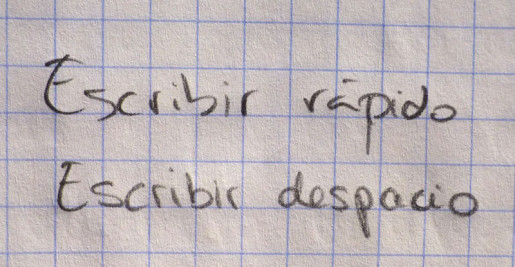 Escribir rápido
Escribir despacio